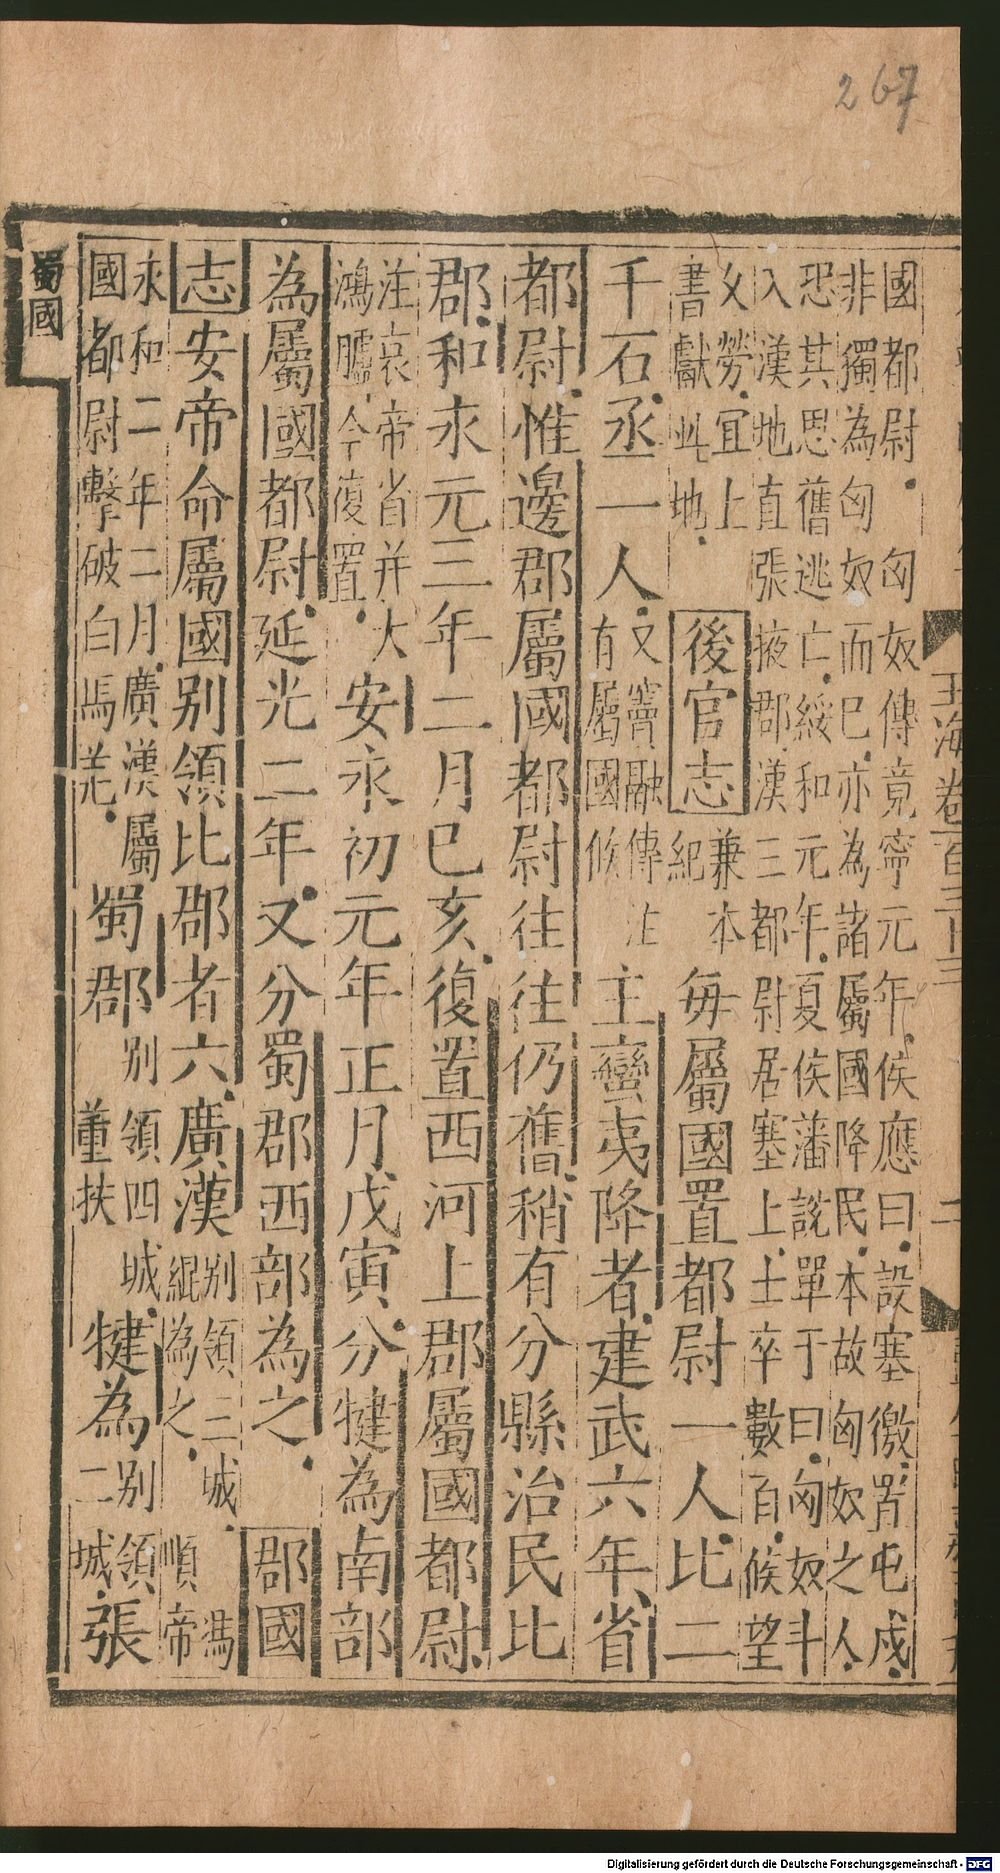 267
國都尉匈奴傳竟寧元年侯應曰設塞徼置屯戍
非獨為匈奴而已亦為諸屬國降民本故匈奴之人
恐其思舊逃亡綏和元年夏侯藩說單于曰匈奴斗
入漢地直張掖郡漢三都尉居塞上士卒數百候望
乆勞宜上
書獻此地
後官志
兼本
紀
每屬國置都尉一人比二
千石丞一人
又竇融傳注
有屬國候
主蠻夷降者建武六年省
都尉惟邊郡屬國都尉往往仍舊稍有分縣治民比
郡和永元三年二月已亥復置西河上郡屬國都尉
注哀帝省并大
鴻臚今復置
安永初元年正月戊寅分犍為南部
為屬國都尉延光二年又分蜀郡西部為之郡國
志安帝命屬國別領比郡者六廣漢
別領三城馮
緄為之順帝
永和二年二月廣漢屬
國都尉擊破白馬羌
蜀郡
別領四城
董扶
犍為
別領
二城
張
蜀國
玉海卷百三十三
二
Digitalisierung gefördert durch die Deutsche Forschungsgemeinschaft - DFG